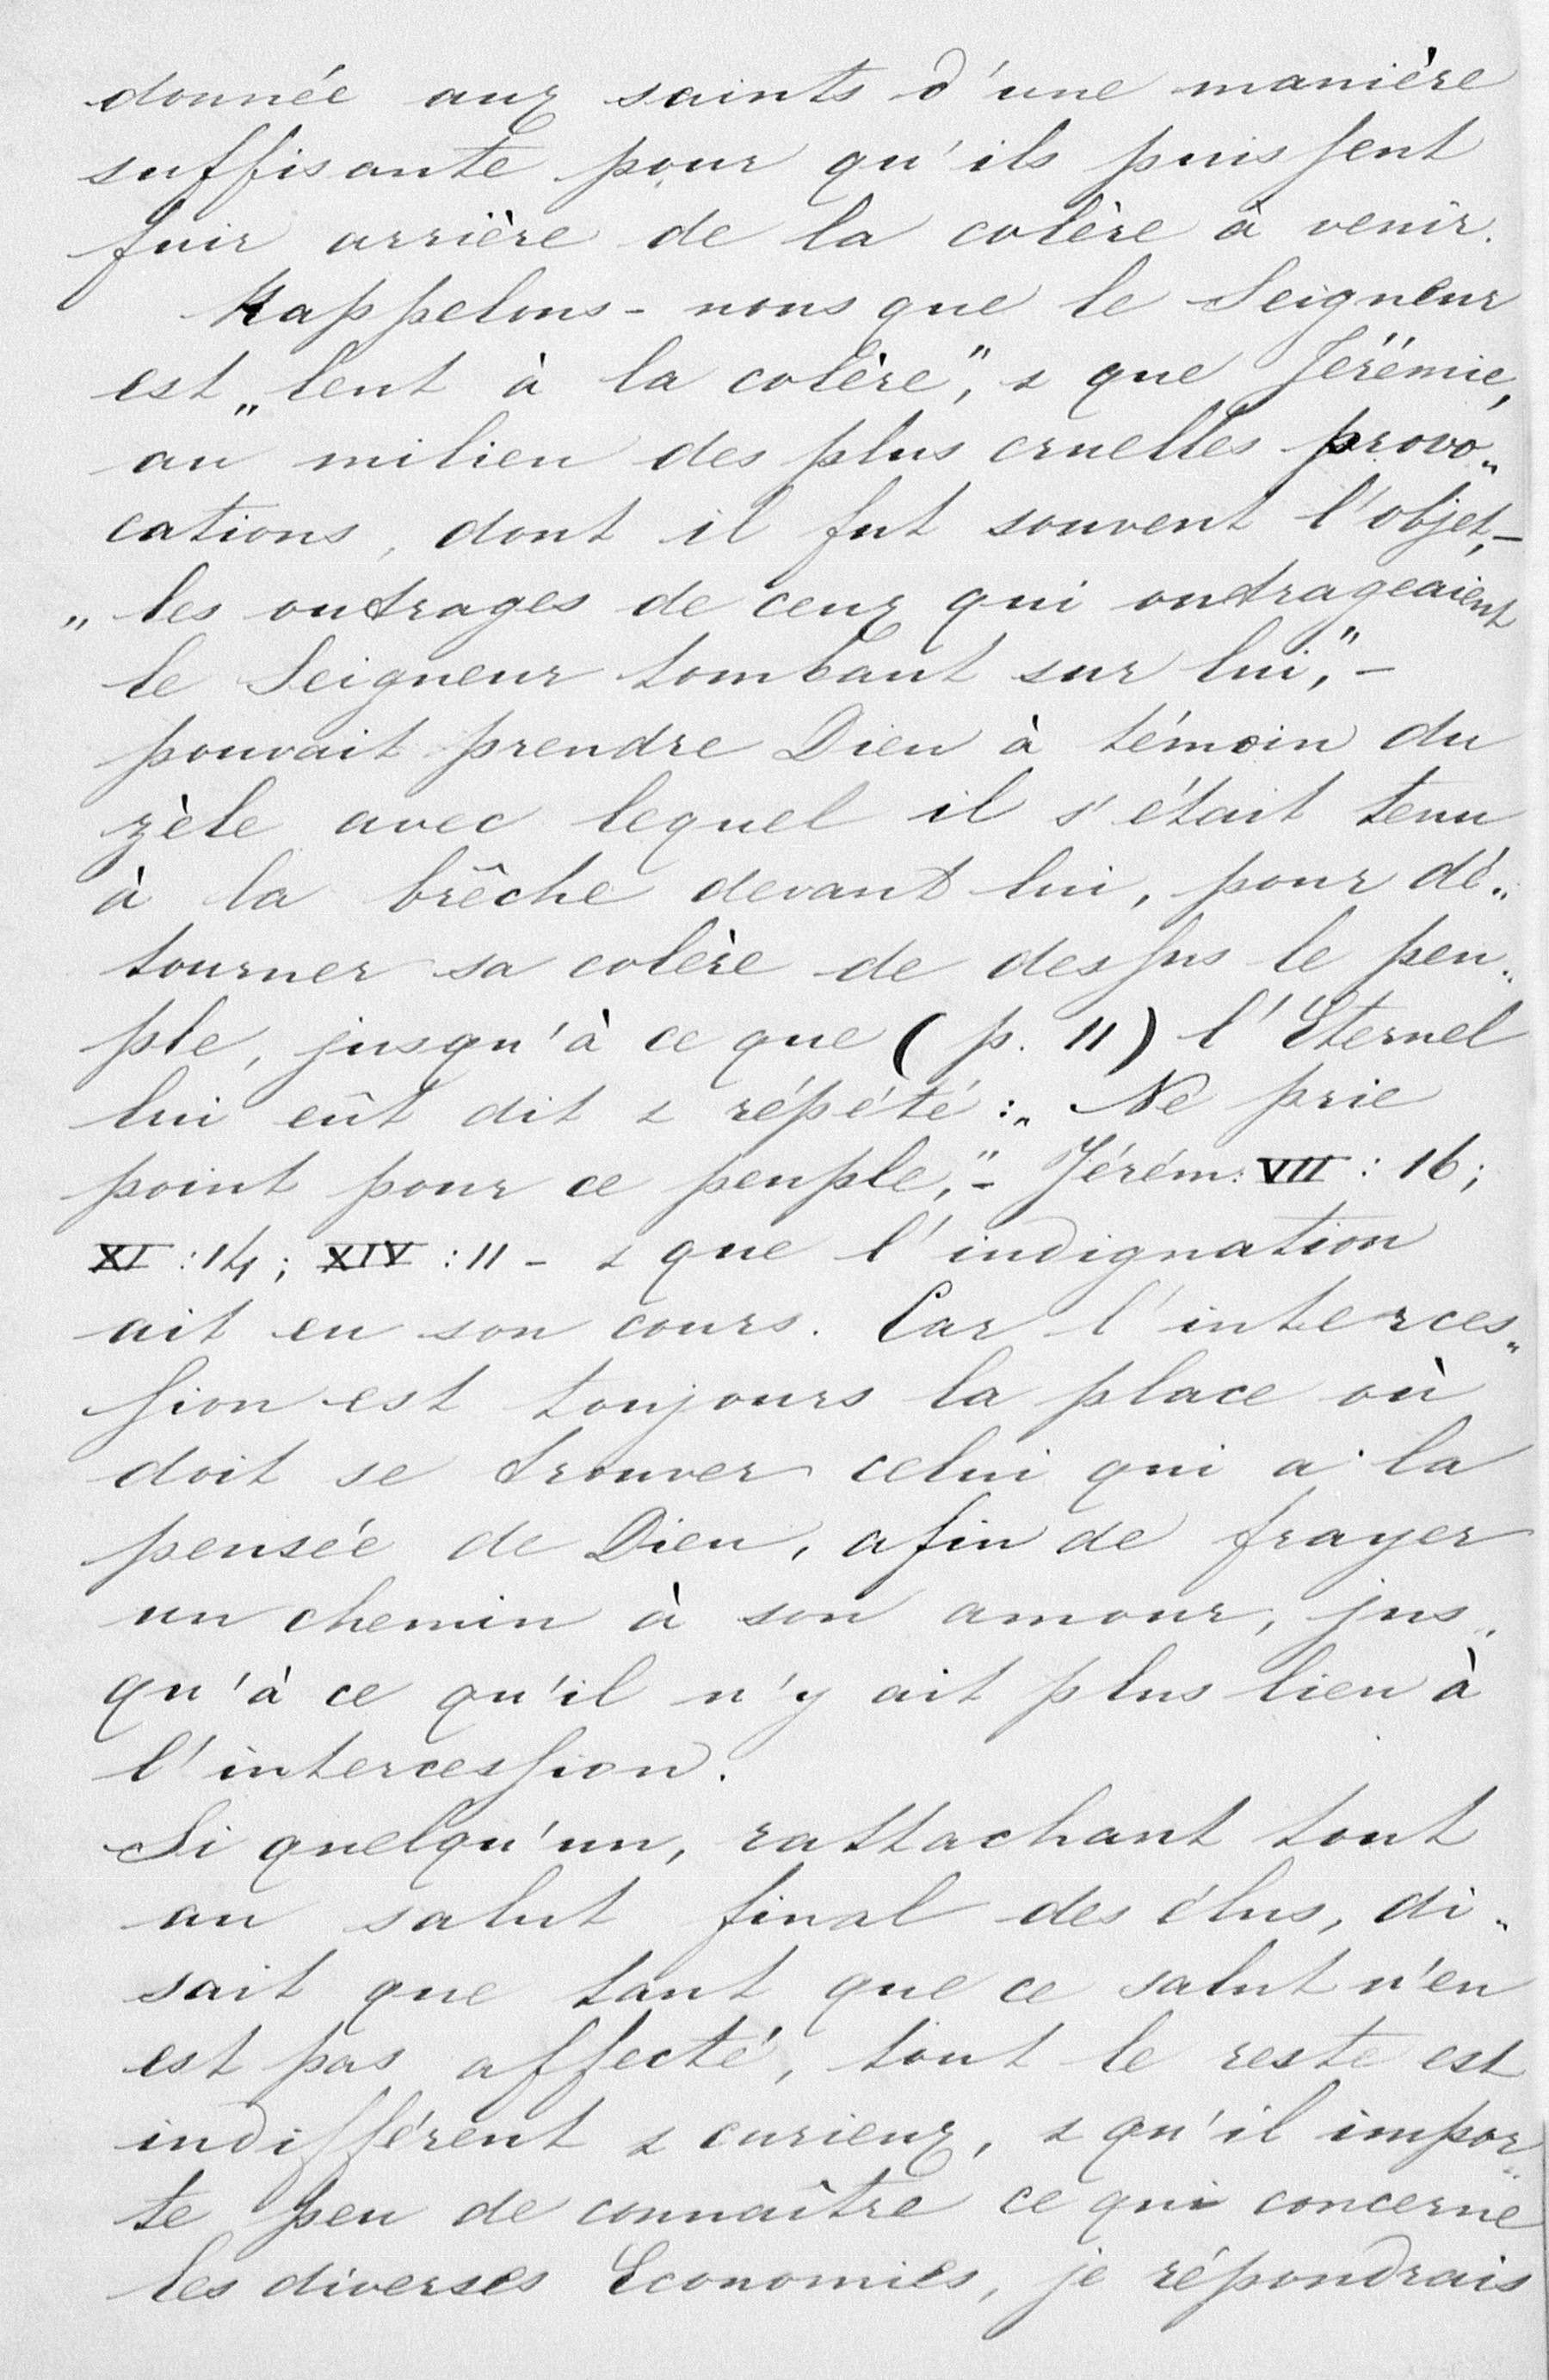 donnée aux saints d'une manière
suffisante pour qu'ils puissent
fuir arrière de la colère à venir.
Rappelons-nous que le Seigneur
est „lent à la colère", & que Jérémie,
au milieu des plus cruelles provo„
cations, dont il fut souvent l'objet, –
„les outrages de ceux qui outrageaient
le Seigneur tombant sur lui," –
pouvait prendre Dieu à témoin du
zèle avec lequel il s'était tenu
à la brêche devant lui, pour dé„
tourner sa colère de dessus le peu„
ple, jusqu'à ce que (p. 11) l'Eternel
lui eût dit & répété : „Ne prie
point pour ce peuple," – Jérém: VII : 16;
XI : 14; XIV : 11 – & que l'indignation
ait eu son cours. Car l'interces„
sion est toujours la place où
doit se trouver celui qui a la
pensée de Dieu, afin de frayer
un chemin à son amour, jus„
qu'à ce qu'il n'y ait plus lieu à
l'intercession.
Si quelqu'un, rattachant tout
au salut final des élus, di„
sait que tant que ce salut n'en
est pas affecté, tout le reste est
indifférent & curieux, & qu'il impor„
te peu de connaître ce qui concerne
les diverses Economies, je répondrais